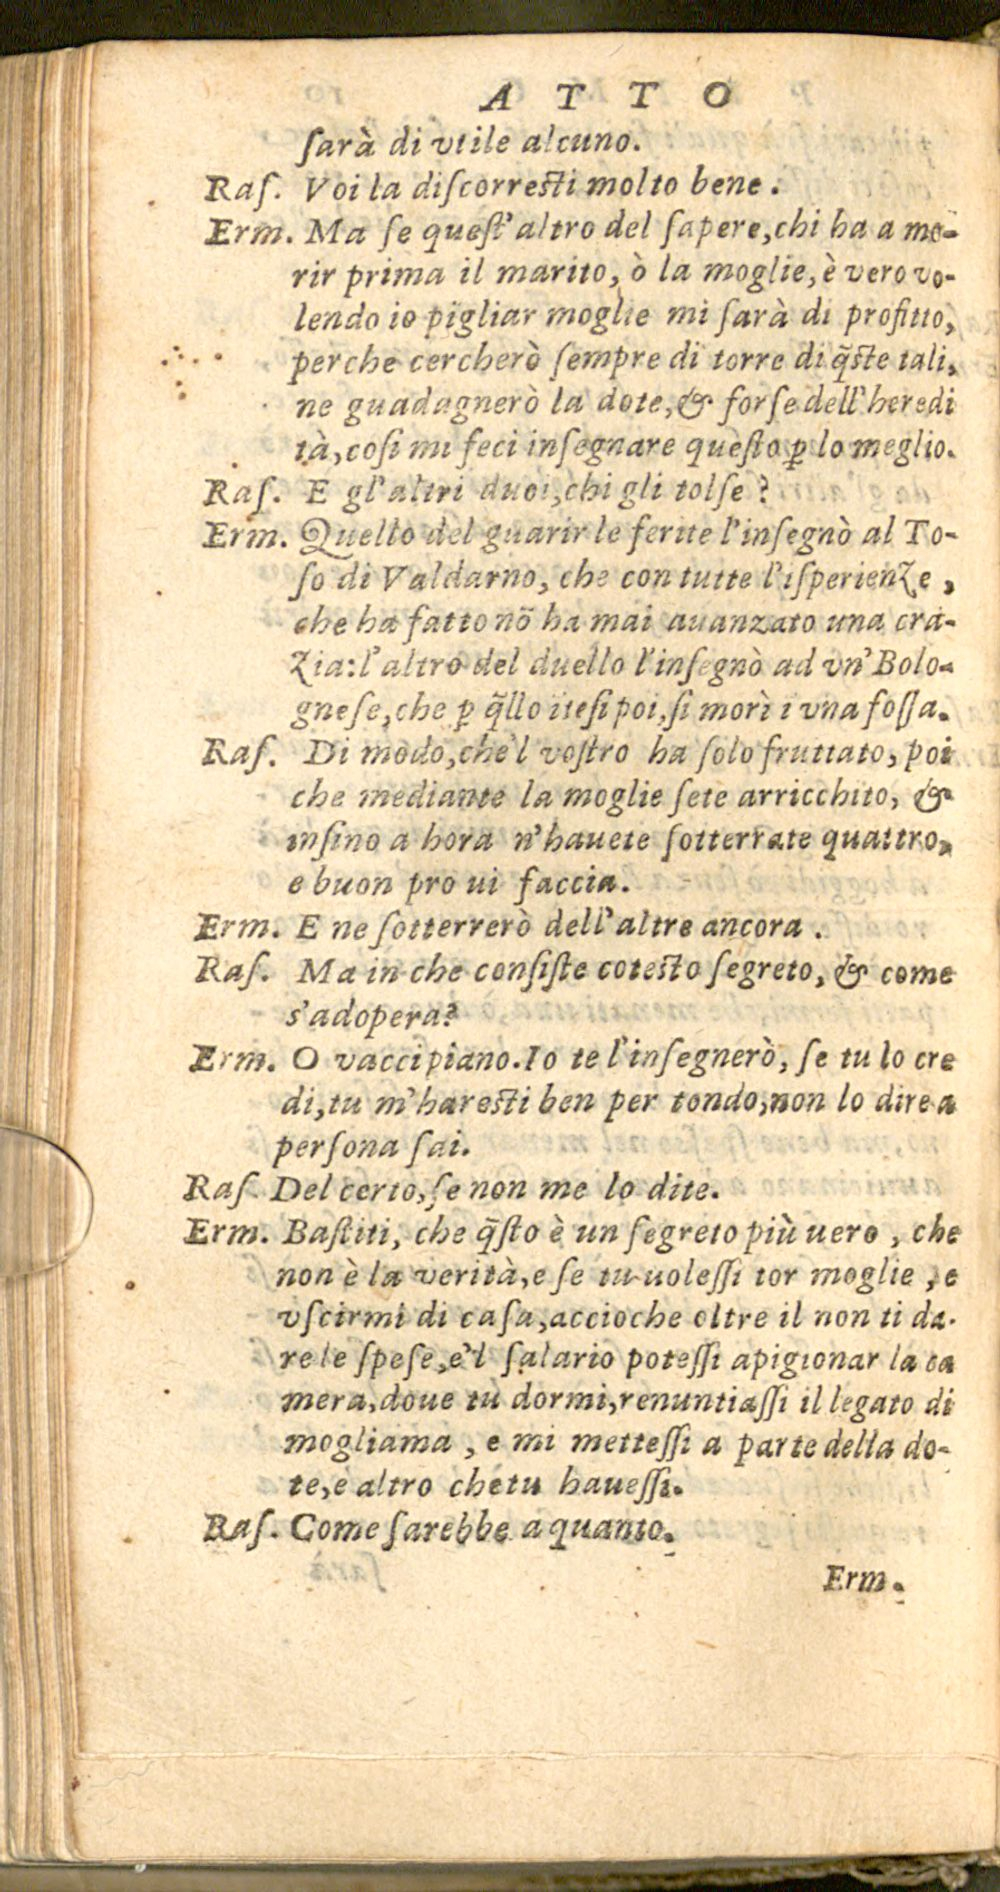 ATTO
ſarà di vtile alcuno.
Raſ. Voi la diſcorreſti molto bene.
Erm. Ma ſe queſt'altro del ſapere, chi ha a mo-
rir prima il marito, ò la moglie, è vero vo-
lendo io pigliar moglie mi ſarà di profitto,
perche cercherò ſempre di torre di q̃ſte tali,
ne guadagnerò la dote, & forſe dell'heredi
tà, coſi mi feci inſegnare queſto ꝑ lo meglio.
Raſ. E gl'altri duoi, chi gli tolſe?
Erm. Quello del guarir le ferite l'inſegnò al To-
ſo di Valdarno, che con tutte l'iſperienze,
che ha fatto nõ ha mai auanzato una cra-
zia: l'altro del duello l'inſegnò ad vn'Bolo-
gneſe, che ꝑ q̃llo iteſi poi, ſi morì i vna foſſa.
Raſ. Di modo, che'l voſtro ha ſolo fruttato, poi
che mediante la moglie ſete arricchito, &
inſino a hora n'hauete ſotterrate quattro,
e buon pro ui faccia.
Erm. E ne ſotterrerò dell'altre ancora.
Raſ. Ma in che conſiſte coteſto ſegreto, & come
s'adopera?
Erm. O vacci piano. Io te l'inſegnerò, ſe tu lo cre
di, tu m'hareſti ben per tondo, non lo dire a
perſona ſai.
Raſ. Del certo, ſe non me lo dite.
Erm. Baſtiti, che q̃ſto è un ſegreto più uero, che
non è la verità, e ſe tu uoleſſi tor moglie, e
vſcirmi di caſa, accioche oltre il non ti da-
re le ſpeſe, e'l ſalario poteſſi apigionar la ca
mera, doue tù dormi, renuntiaſſi il legato di
mogliama, e mi metteſſi a parte della do-
te, e altro che tu haueſſi.
Raſ. Come ſarebbe a quanto.
Erm.